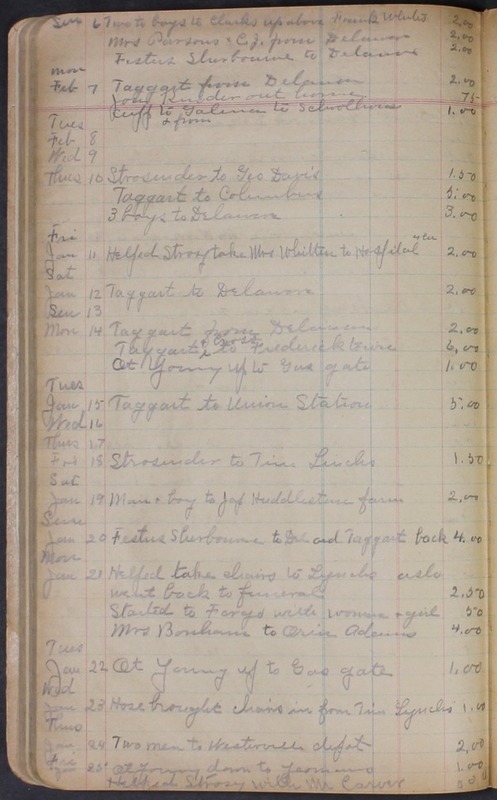 Sun 6 Two to boys to Clarks up above Frank Wheeler 2.00
Mrs Parsons & C.J. from Delaware 2.00
Festus Sherbourne to Delaware 2.00
Mon
Feb 7 Taggart from Delaware 2.00
out home 75
to Galena to Schoolhouse 1.00
& from
Tues
Feb 8
Wed 9
Thus 10 Strosnider to Geo Davis 1.50
Taggart to Columbus 5.00
3 boys to Delaware 3.00
Fri
Jan 11 Helped Strosy take Mrs Whitten to Hospital 2.00
Sat
Jan 12 Taggart to Delaware 2.00
Sun 13
Mon 14 Taggart from Delaware 2.00
Taggart & to Fredericktown 6.00
At Young up to Gas gate 1.00
Tues
Jan 15 Taggart to Union Station 5.00
Wed 16
Thus 17
Fri 18 Strosnider to Tim Linchs 1.50
Sat
Jan 19 Man & boy to Jaf Huddleston farm 2.00
Sun
Jan 20 Festus Sherbourne to Del and Taggart back 4.00
Mon
Jan 21 Helped take chairs to Lynchs aslo
went back to funeral 2.50
Started to Fargo with woman & girl 50
Mrs Bonham to Orin Adams 4.00
Tues
Jan 22 At Young up to Gas gate 1.00
Wed
Jan 23 Hose brought chairs in from Tim Lynchs 1.00
Thus
Jan 24 Two men to Westerville depot 2.00
Fri
Jan 25 At Young down to 1.00
Helped Strosy with Mr Carver